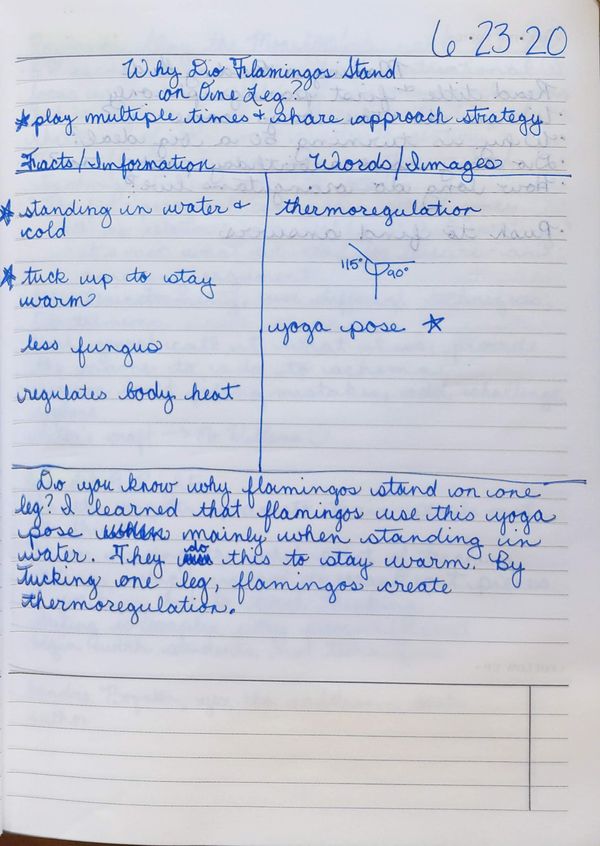 6.23.20
Why Do Flamingos Stand
on One Leg?
★play multiple times & share approach strategy
Facts/Information
Words/Images
★ standing in water &
cold
★ tuck up to stay
warm
less fungus
regulates body heat
thermoregulation
115° 90°
yoga pose ★
Do you know why flamingos stand on one
leg? I learned that flamingos use this yoga
pose mainly when standing in
water. They do this to stay warm. By
tucking one leg, flamingos create
thermoregulation.